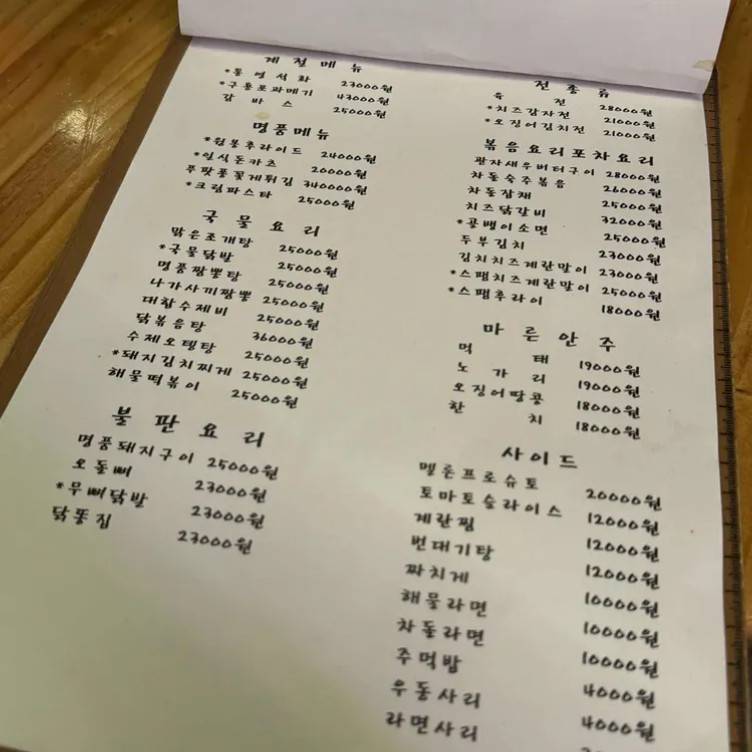 계절메뉴
*통영석화 23000원
*구룡포과메기 43000원
감바스 25000원
명품메뉴
24000원
*인식돈카츠 20000원
푸팟퐁꽃게튀김 340000원
*크림파스타 25000원
국물요리
맑은조개탕 25000원
*국물닭발 25000원
명품짬뽕탕 25000원
나가사끼짬뽕 25000원
대합수제비 25000원
닭볶음탕 36000원
수제오뎅탕 25000원
*돼지김치찌게 25000원
해물떡볶이 25000원
불판요리
명품돼지구이 25000원
오돌뼈 23000원
*무뼈닭발 23000원
닭똥집 23000원
전종류
육전 28000원
*치즈감자전 21000원
*오징어김치전 21000원
볶음요리포차요리
관자새우버터구이 28000원
차돌숙주볶음 26000원
차돌잡채 25000원
치즈닭갈비 32000원
*골뱅이소면 25000원
두부김치 23000원
김치치즈계란말이 23000원
*스팸치즈계란말이 25000원
*스팸후라이 18000원
마른안주
먹태 19000원
노가리 19000원
오징어땅콩 18000원
한치 18000원
사이드
멜론프로슈토 20000원
토마토슬라이스 12000원
계란찜 12000원
번데기탕 12000원
짜치게 10000원
해물라면 10000원
차돌라면 10000원
주먹밥 4000원
우동사리 4000원
라면사리